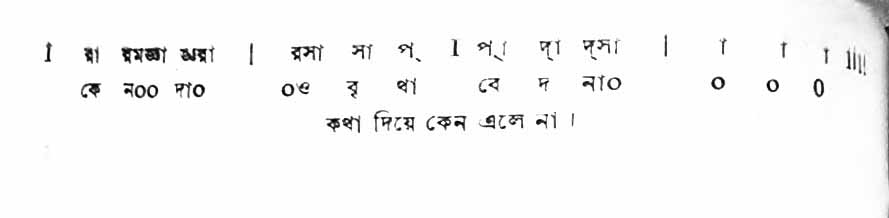 I রা রমজ্ঞা জ্ঞরা | রসা সা প্ I প্া দ্া দ্সা | া া া IIII
কে ন০০ দা০ ০ও বৃ থা বে দ না০ ০ ০ ০
কথা দিয়ে কেন এলে না ।